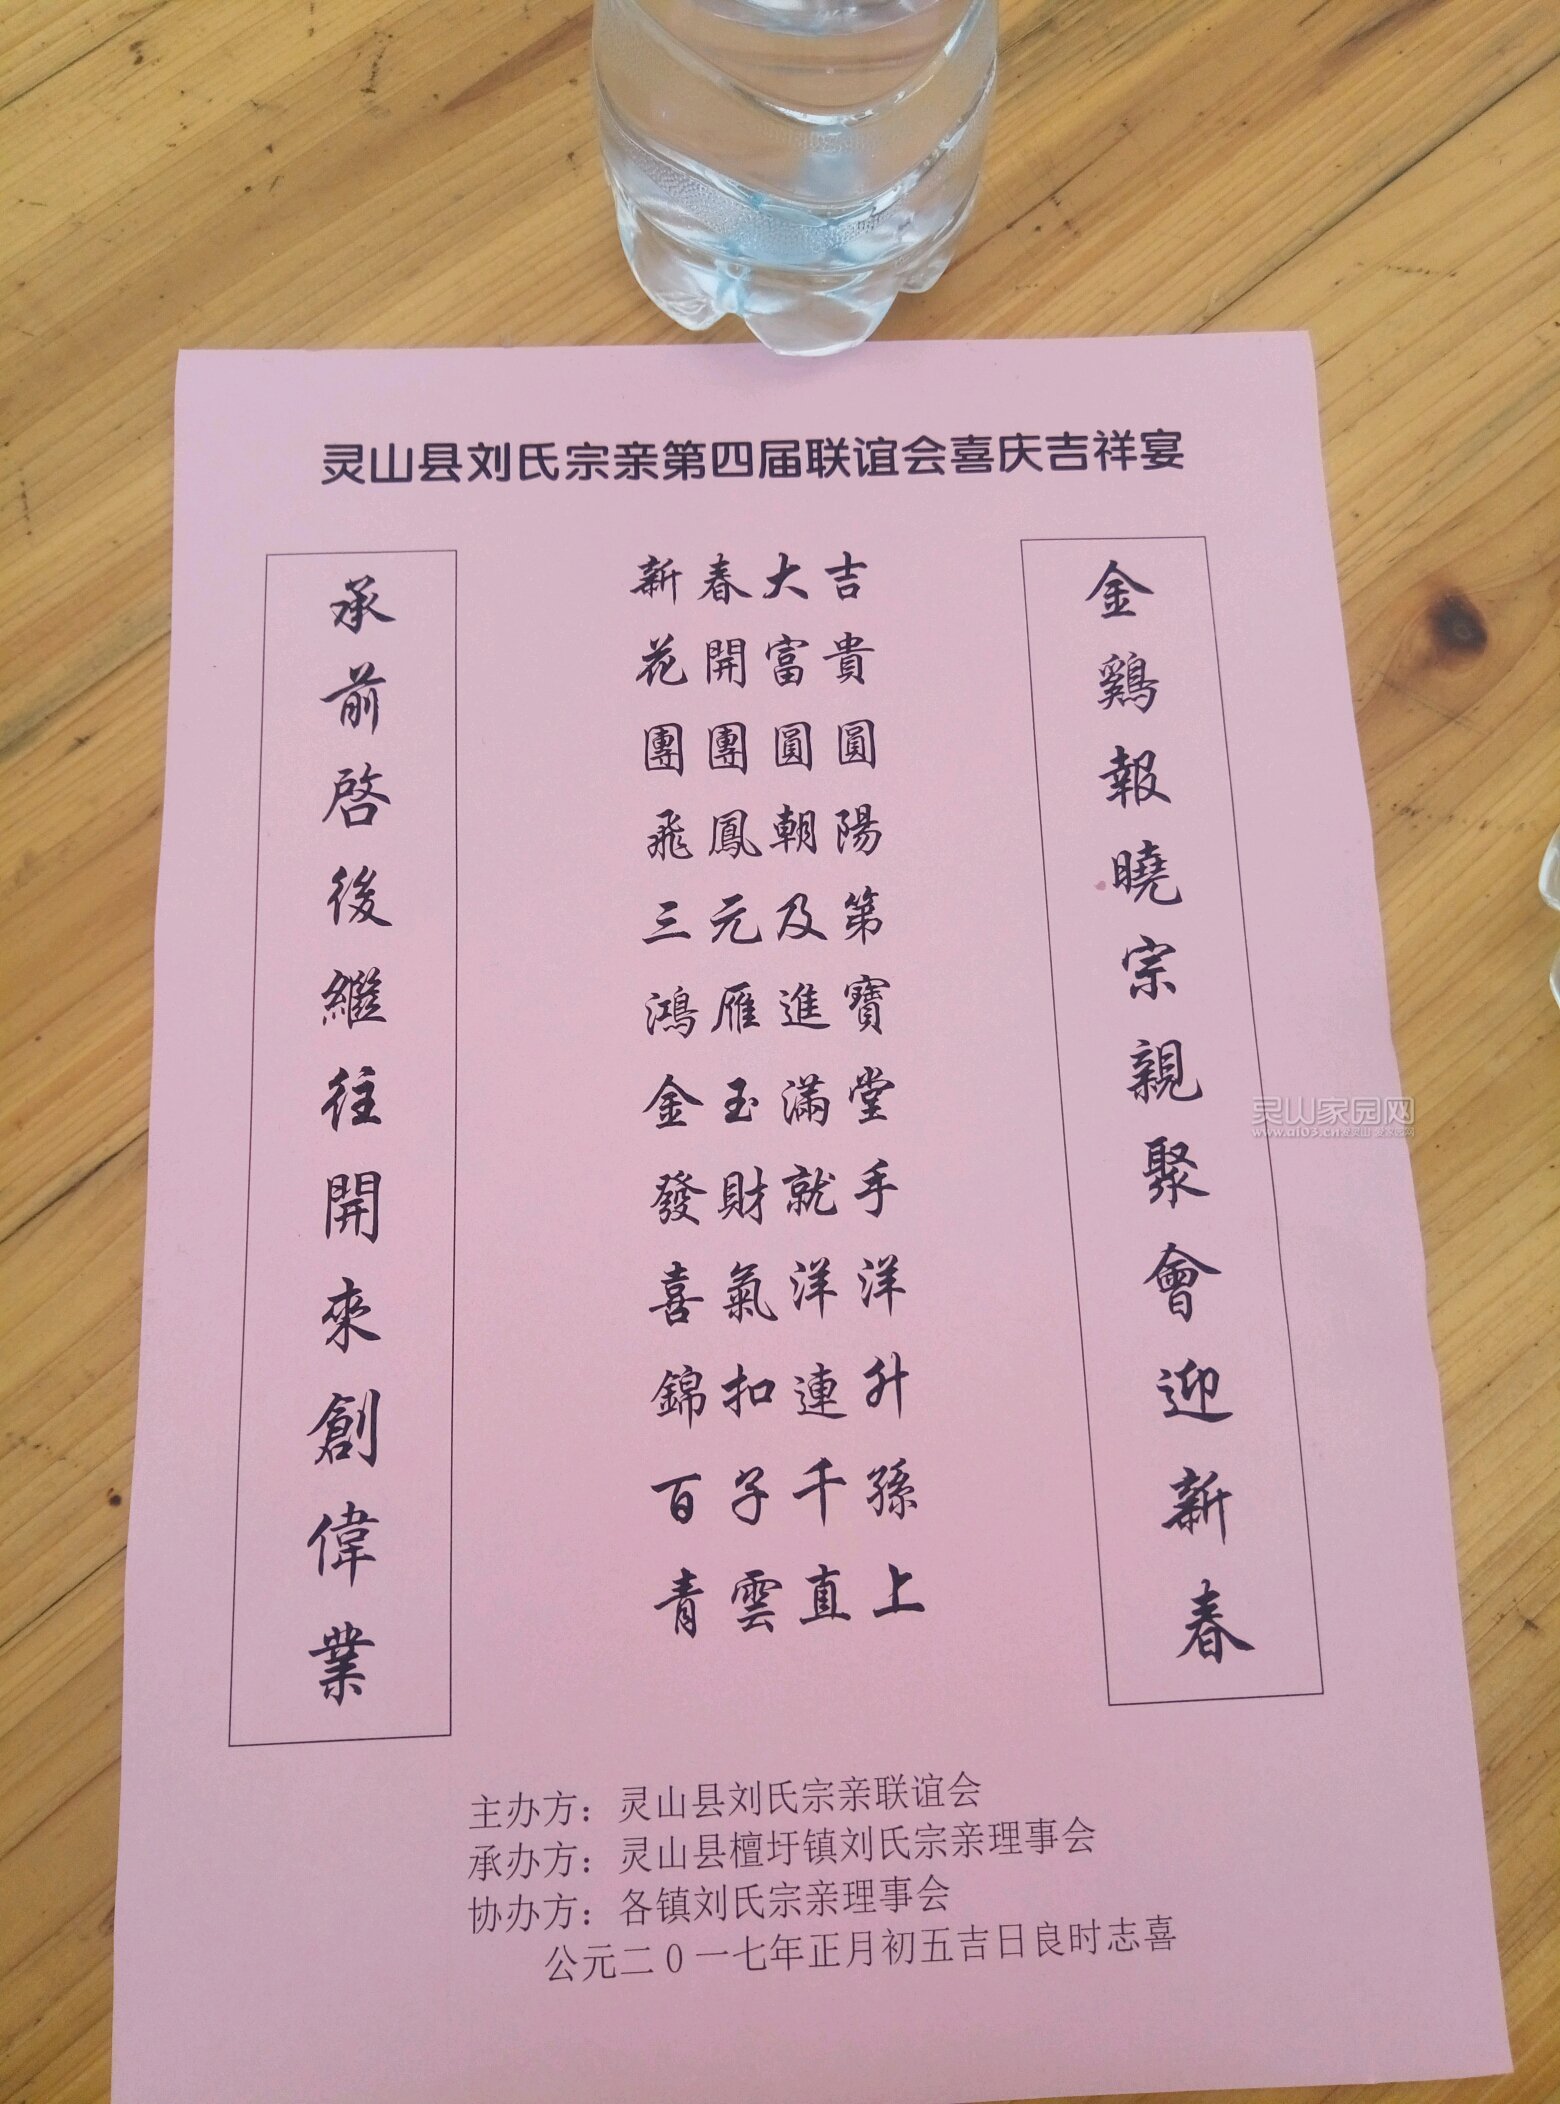 灵山县刘氏宗亲第四届联谊会喜庆吉祥宴
金鷄報曉宗親聚會迎新春
新春大吉
花開富貴
團團圓圓
飛鳳朝陽
三元及第
鴻雁進寶
金玉滿堂
發財就手
喜氣洋洋
錦扣連升
百子千孫
青雲直上
承前啓後繼往開來創偉業
主办方：灵山县刘氏宗亲联谊会
承办方：灵山县檀圩镇刘氏宗亲理事会
协办方：各镇刘氏宗亲理事会
公元二0一七年正月初五吉日良时志喜
灵山家园网